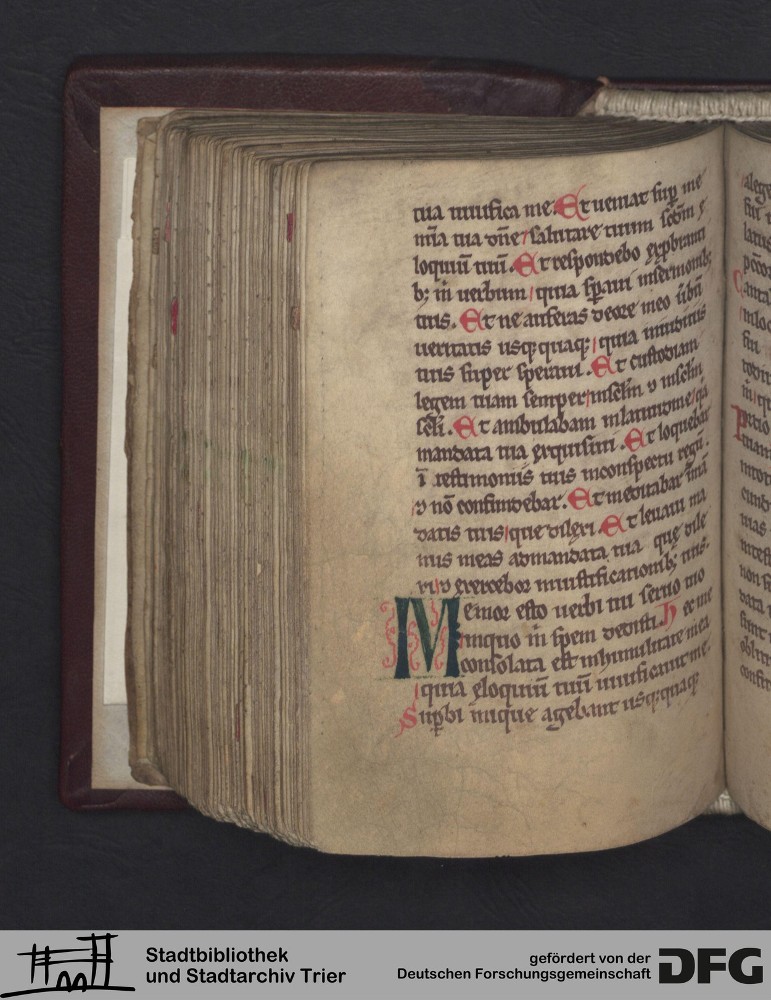 tua uiuifica me. Et ueniat sup me
mia tua dne / salutare tuum scdm e
loquiu tuu. Et respondebo exprobranti
b; m uerbum / quia spaui in sermonib;
tuis. Et ne auferas de ore meo ubu
ueritatis usq; quaq; / quia in iudiciis
tuis super speraui. Et custodiam
legem tuam semper / in sclm 7 in sclm
scli. Et ambulabam in latitudine / qa
mandata tua exquisiui. Et loquebar
i testimoniis tuis in conspectu regu.
/ 7 no confundebar. Et meditabar i ma
datis tuis / que dilexi. Et leuaui ma
nus meas ad mandata tua que dile
xi / 7 exercebor in iustificationib; tuis.
Memor esto uerbi tui seruo tuo
in quo m spem dedisti. Hec me
consolata est in humilitate mea
/ quia eloquiu tuu uiuificauit me.
Supbi inique agebant usq; quaq;
Stadtbibliothek
und Stadtarchiv Trier
gefördert von der
Deutschen Forschungsgemeinschaft
DFG